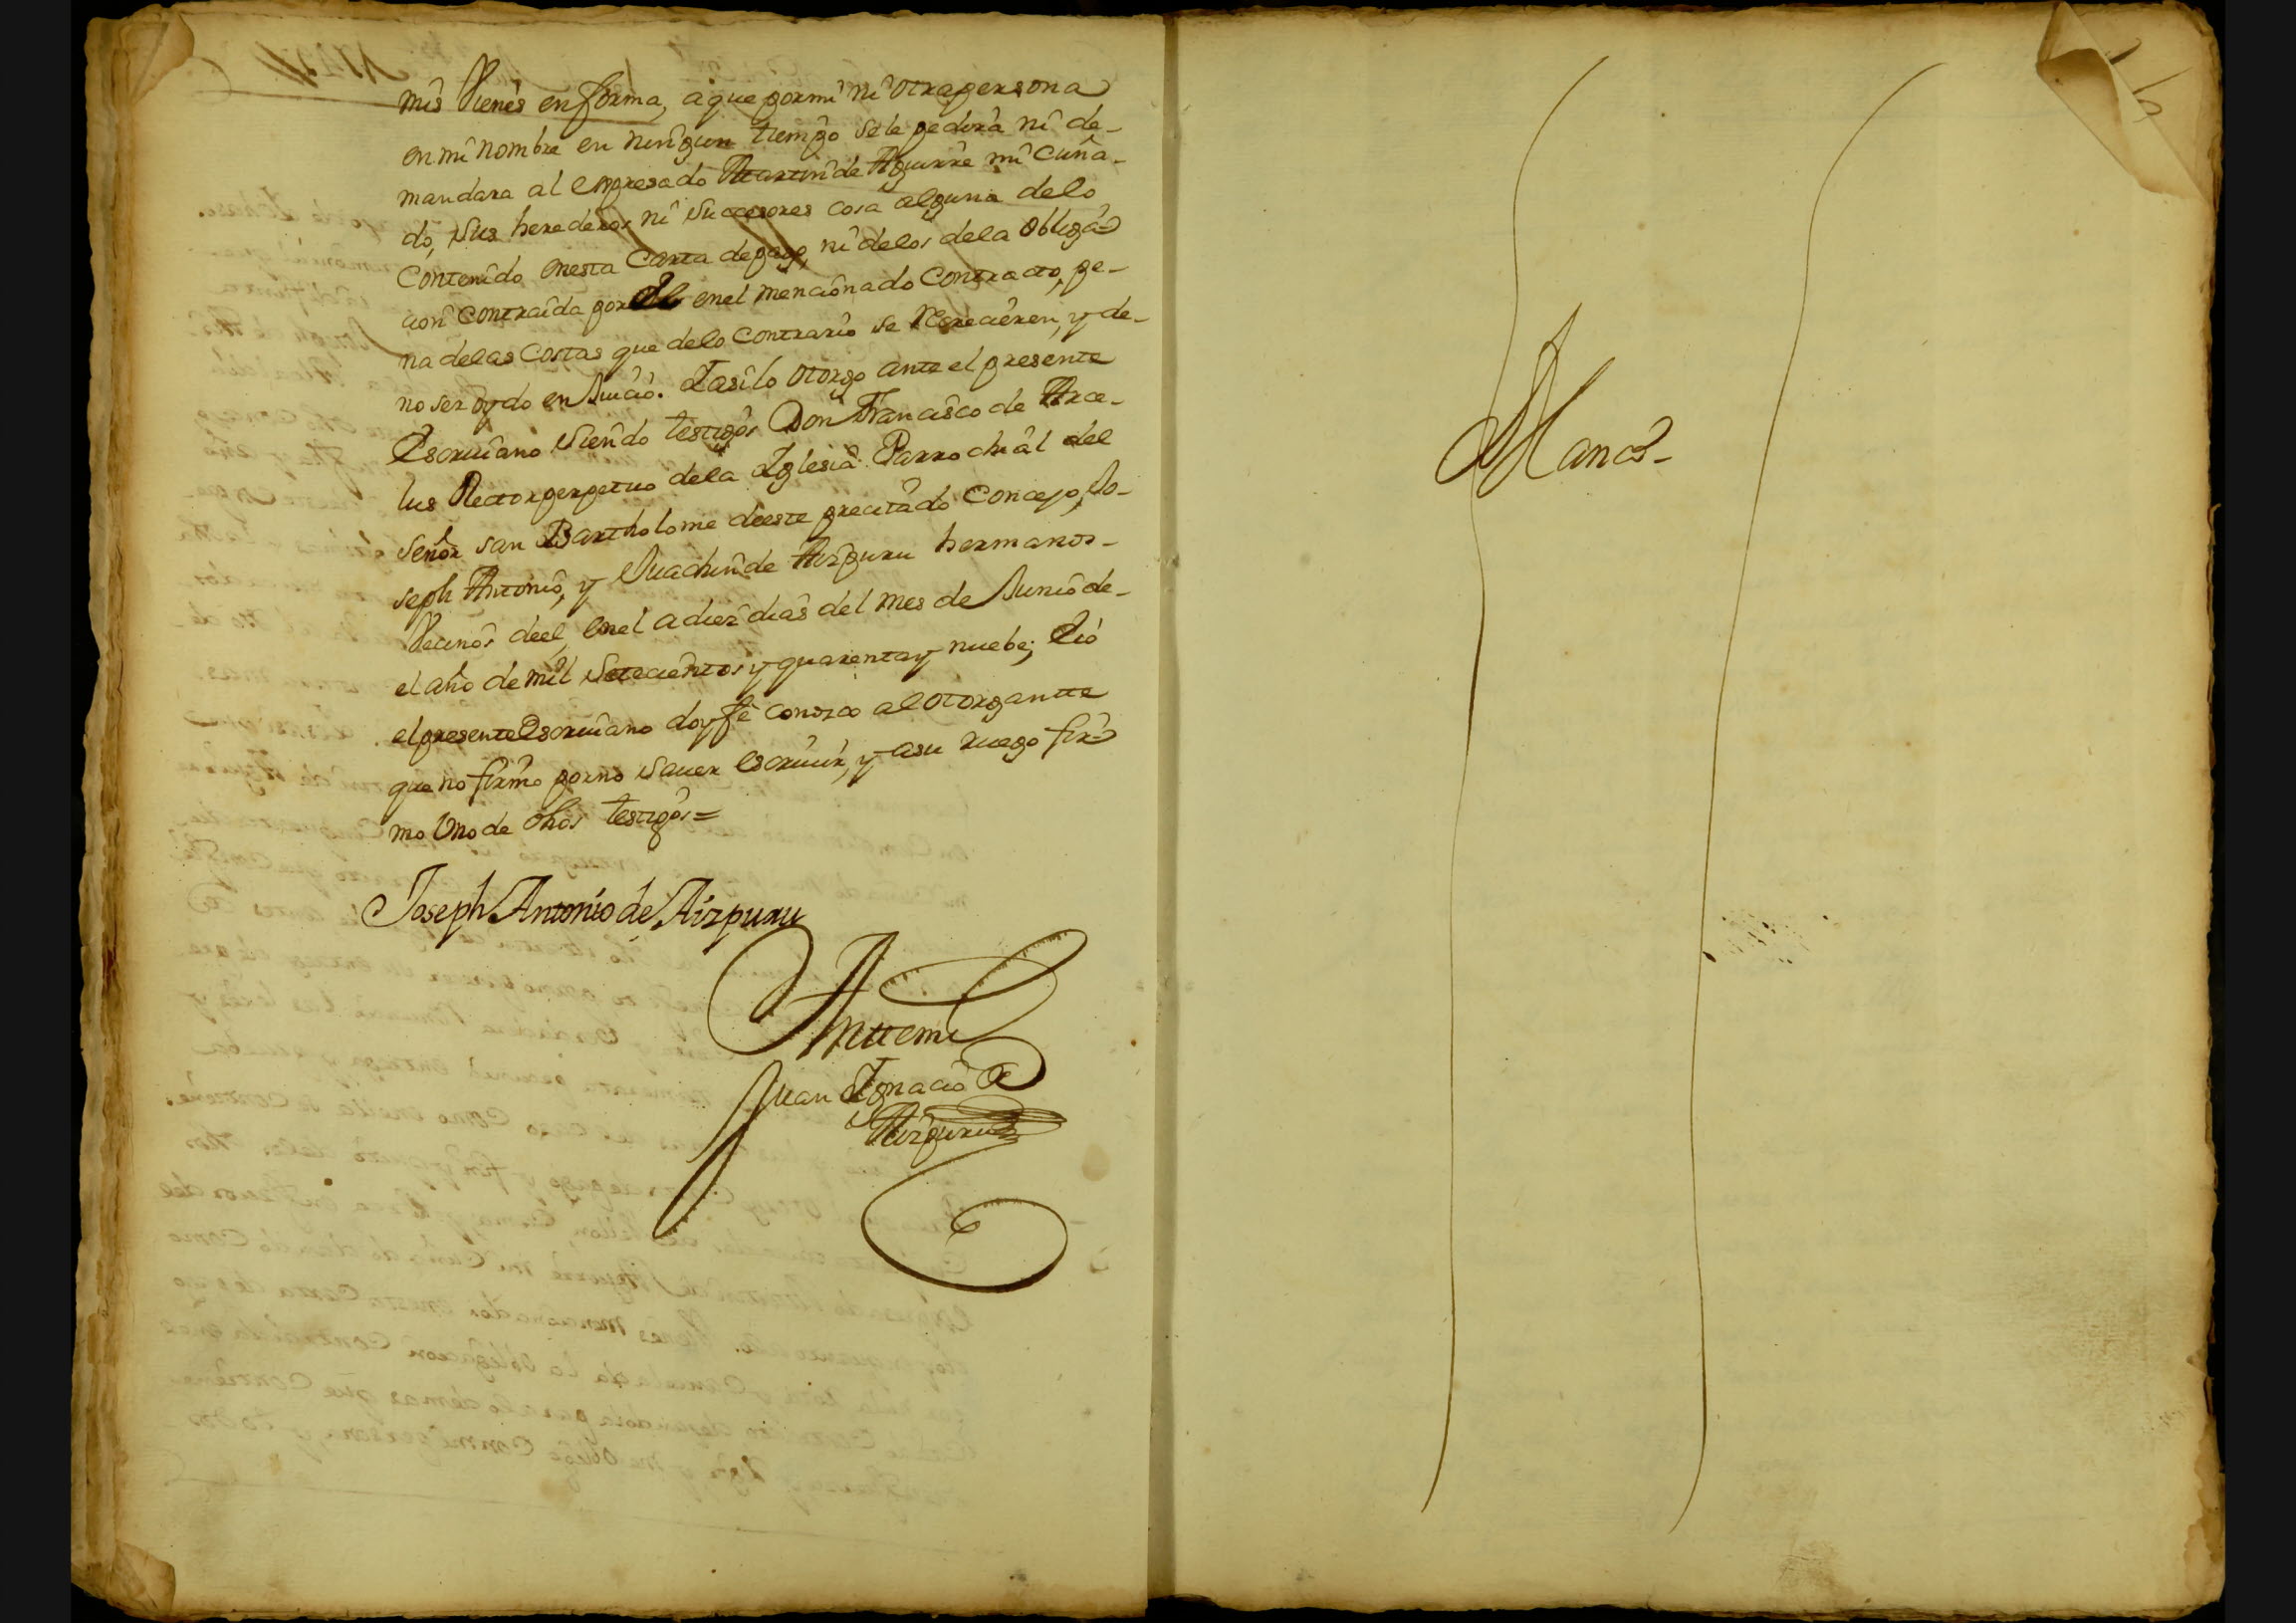 mis Vienes en forma, a que por mi ni otra persona
en mi nombre en ningun tiempo se le pedira ni de-
mandara al expresado Martin de Aguirre mi cuña-
do, sus herederos ni Succesores cosa alguna delo
Contenido en esta Carta de pago, ni delos dela obliga-
cion contraida por el en el mencionado Contracto, pe-
na delas Costas que delo contrario se recrecieren, y de-
no ser oydo en Juicio. I asi lo otorgo ante el presente
Escriuano siendo testigos Don Francisco de Arce-
lus Rector perpetuo dela Iglesia Parrochial del
Señor san Bartholome deeste precitado Concejo, Jo-
seph Antonio, y Juachin de Aizpuru hermanos-
Vecinos deel, en el a diez dias del mes de Junio de-
el año de mil Setecientos y quarenta y nuebe; Eio
el presente Escriuano doy fe conozco al otorgantte
que no firmo por no sauer escriuir, y asu ruego fir-
mo Uno de dhos testigos =
Joseph Antonio de Aizpuru
Anttemi
Juan Ignacio de
Aizpuru
Blanco-